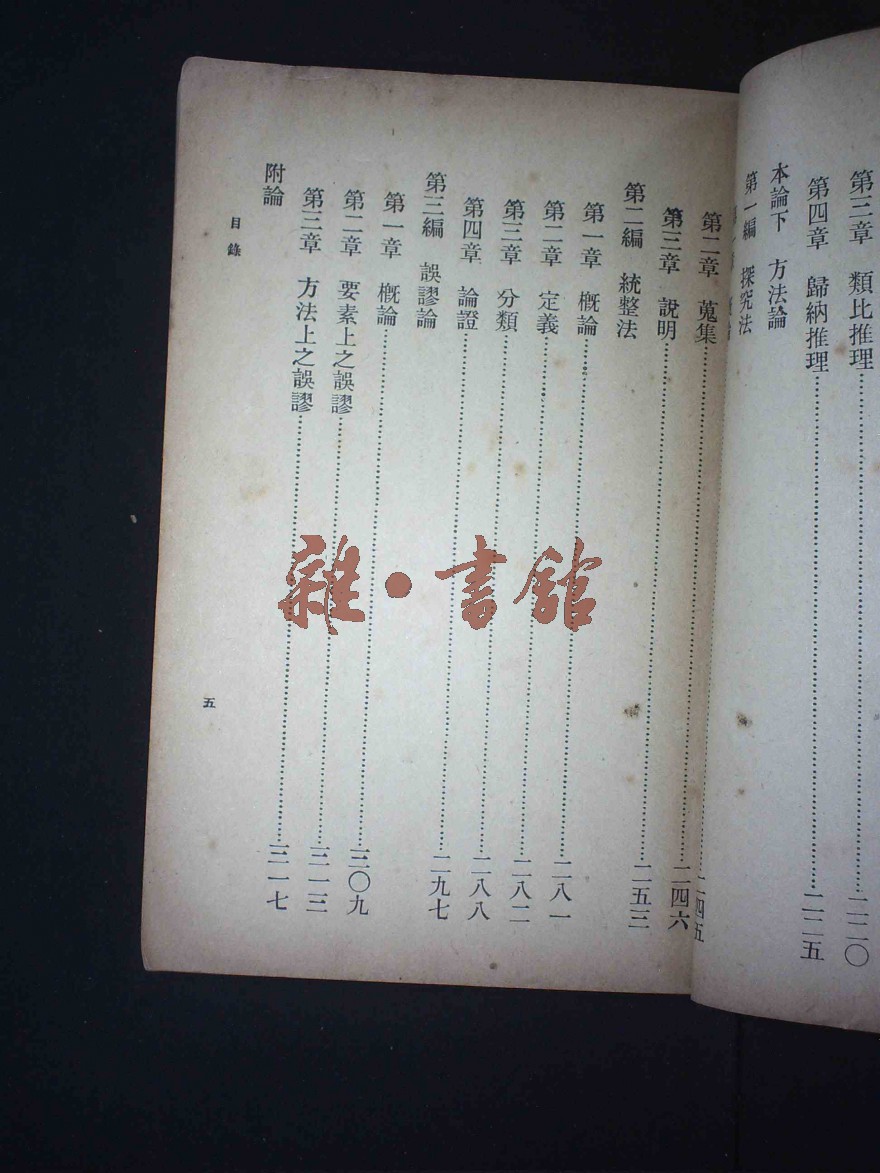 第三章　類比推理……二二〇
第四章　歸納推理……二二五
本論下　方法論
第一編　探究法
……二四五
第二章　蒐集……二四六
第三章　說明……二五三
第二編　統整法
第一章　概論……二八一
第二章　定義……二八二
第三章　分類……二八八
第四章　論證……二九七
第三編　誤謬論
第一章　概論……三〇九
第二章　要素上之誤謬……三一三
第三章　方法上之誤謬……三一七
附論
目錄
五
雜·書館